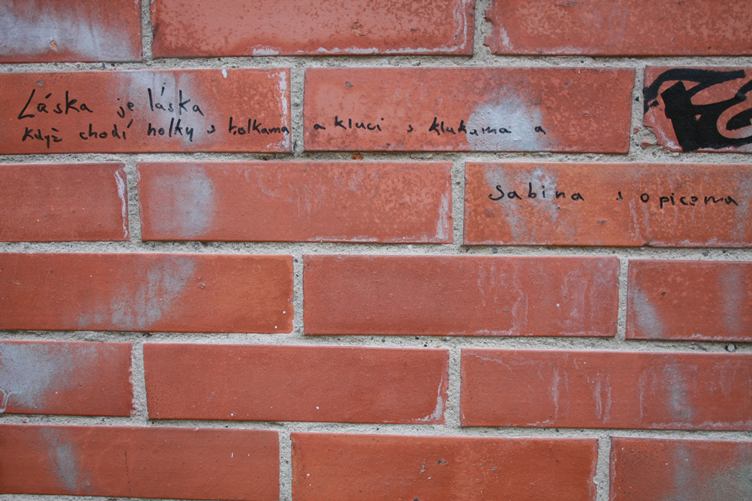 Láska je láska
když chodí holky s holkama a kluci s klukama a
Sabina s opicema